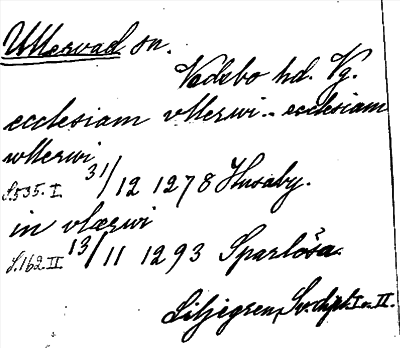 Ullervad sn.
Vadsbo hd. Vg.
ecclesiam vllerwi - ecclesiam
wllerwi
S.535. I 31/12 1278 Husaby.
in vlærwi
S.162 II 13/11 1293 Sparlösa.
Liljegren, Sv. dipl. I o. II.